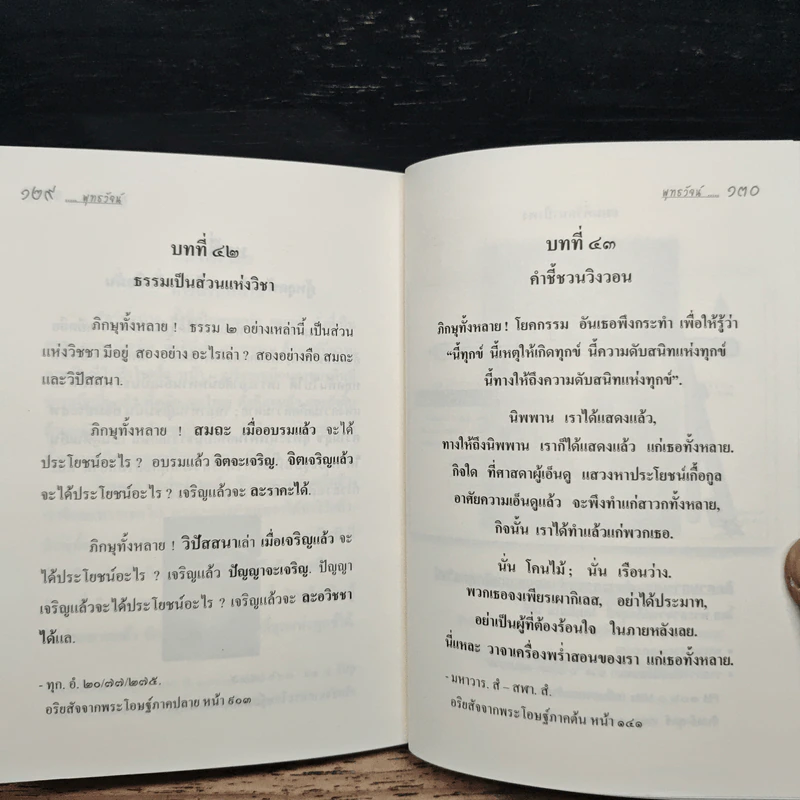 ๑๒๙ .... พุทธวัจน์
บทที่ ๔๒
ธรรมเป็นส่วนแห่งวิชา
ภิกษุทั้งหลาย ! ธรรม ๒ อย่างเหล่านี้ เป็นส่วน
แห่งวิชชา มีอยู่ สองอย่าง อะไรเล่า ? สองอย่างคือ สมถะ
และวิปัสสนา.
ภิกษุทั้งหลาย ! สมถะ เมื่ออบรมแล้ว จะได้
ประโยชน์อะไร ? อบรมแล้ว จิตจะเจริญ. จิตเจริญแล้ว
จะได้ประโยชน์อะไร ? เจริญแล้วจะ ละราคะได้.
ภิกษุทั้งหลาย ! วิปัสสนาเล่า เมื่อเจริญแล้ว จะ
ได้ประโยชน์อะไร ? เจริญแล้ว ปัญญาจะเจริญ. ปัญญา
เจริญแล้วจะได้ประโยชน์อะไร ? เจริญแล้วจะ ละอวิชชา
ได้แล.
- ทุก. อํ. ๒๐/๗๗/๒๗๕.
อริยสัจจากพระโอษฐ์ภาคปลาย หน้า ๙๐๓
พุทธวัจน์ .... ๑๓๐
บทที่ ๔๓
คำชี้ชวนวิงวอน
ภิกษุทั้งหลาย ! โยคกรรม อันเธอพึงกระทำ เพื่อให้รู้ว่า
“นี้ทุกข์ นี้เหตุให้เกิดทุกข์ นี้ความดับสนิทแห่งทุกข์
นี้ทางให้ถึงความดับสนิทแห่งทุกข์”.
นิพพาน เราได้แสดงแล้ว,
ทางให้ถึงนิพพาน เราก็ได้แสดงแล้ว แก่เธอทั้งหลาย.
กิจใด ที่ศาสดาผู้เอ็นดู แสวงหาประโยชน์เกื้อกูล
อาศัยความเอ็นดูแล้ว จะพึงทำแก่สาวกทั้งหลาย,
กิจนั้น เราได้ทำแล้วแก่พวกเธอ.
นั่น โคนไม้ ; นั่น เรือนว่าง.
พวกเธอจงเพียรเผากิเลส, อย่าได้ประมาท,
อย่าเป็นผู้ที่ต้องร้อนใจ ในภายหลังเลย.
นี่แหละ วาจาเครื่องพร่ำสอนของเรา แก่เธอทั้งหลาย.
- มหาวาร. สํ – สฬา. สํ.
อริยสัจจากพระโอษฐ์ภาคต้น หน้า ๑๔๑